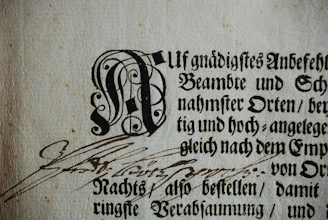 AUf gnädigstes Anbefehl
Beambte und Sch
nahmster Orten / bey
tig und hoch-angelege
gleich nach dem Emp
von Or
Nachts / also bestellen / damit
ringste Verabsaumung / und